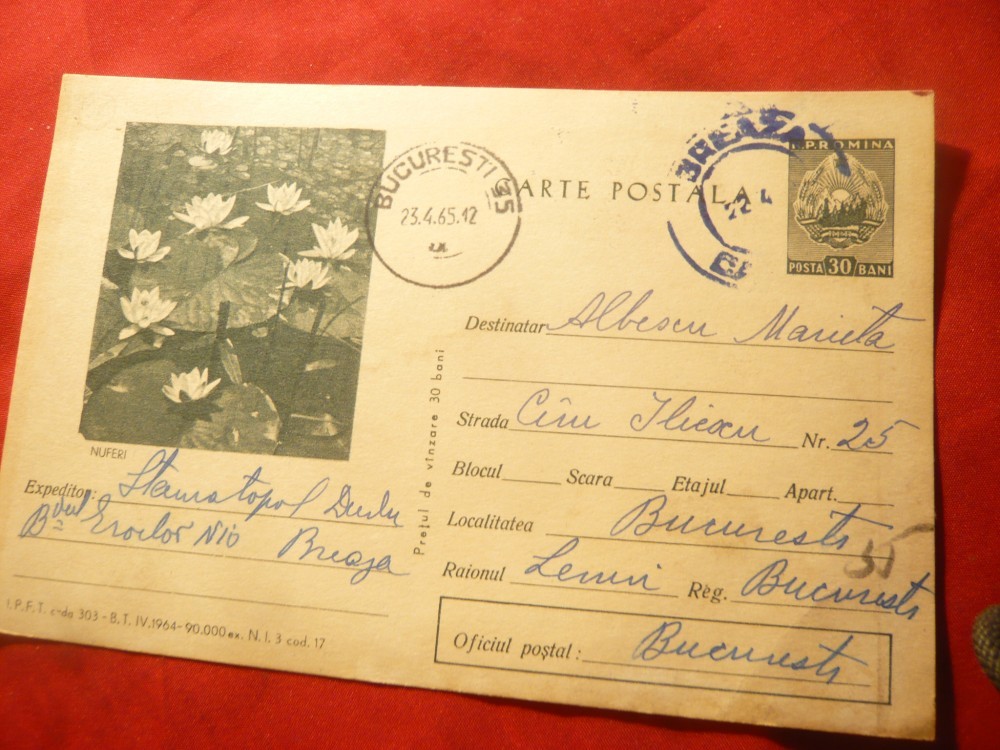 R.P.ROMINA
POSTA 30 BANI
CARTE POSTALA
BUCURESTI 35
23.4.65.12
BREAZA
22 4
NUFERI
Expeditor: Stamatopol Dudu
B-dul Eroilor No 10 Breaza
I.P.F.T. c-da 303 - B.T. IV.1964 - 90.000 ex. N.I. 3 cod. 17
Prețul de vînzare 30 bani
Destinatar Albescu Marieta
Strada Iliescu Nr. 25
Blocul Scara Etajul Apart.
Localitatea Bucuresti
35
Raionul Lenin Reg. Bucuresti
Oficiul poștal: Bucuresti